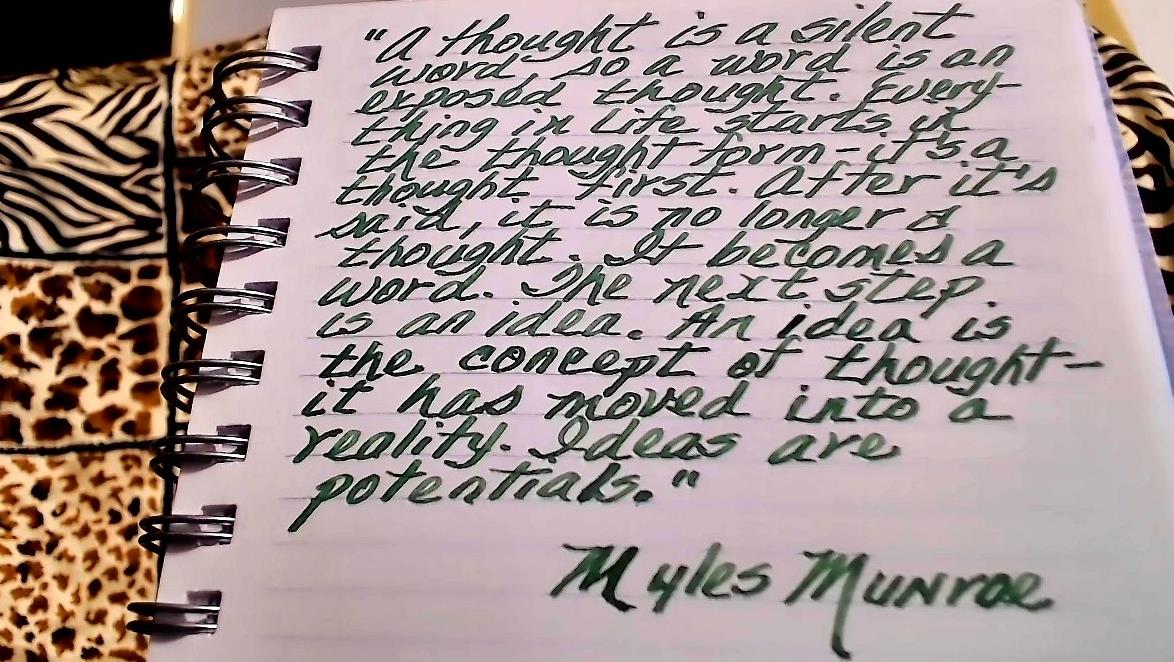 "A thought is a silent
word, so a word is an
exposed thought. Every-
thing in Life starts in
the thought form-it's a
thought first. After it's
said, it is no longer a
thought. It becomes a
word. The next step
is an idea. An idea is
the concept of thought-
it has moved into a
reality. Ideas are
potentials."
Myles Munroe